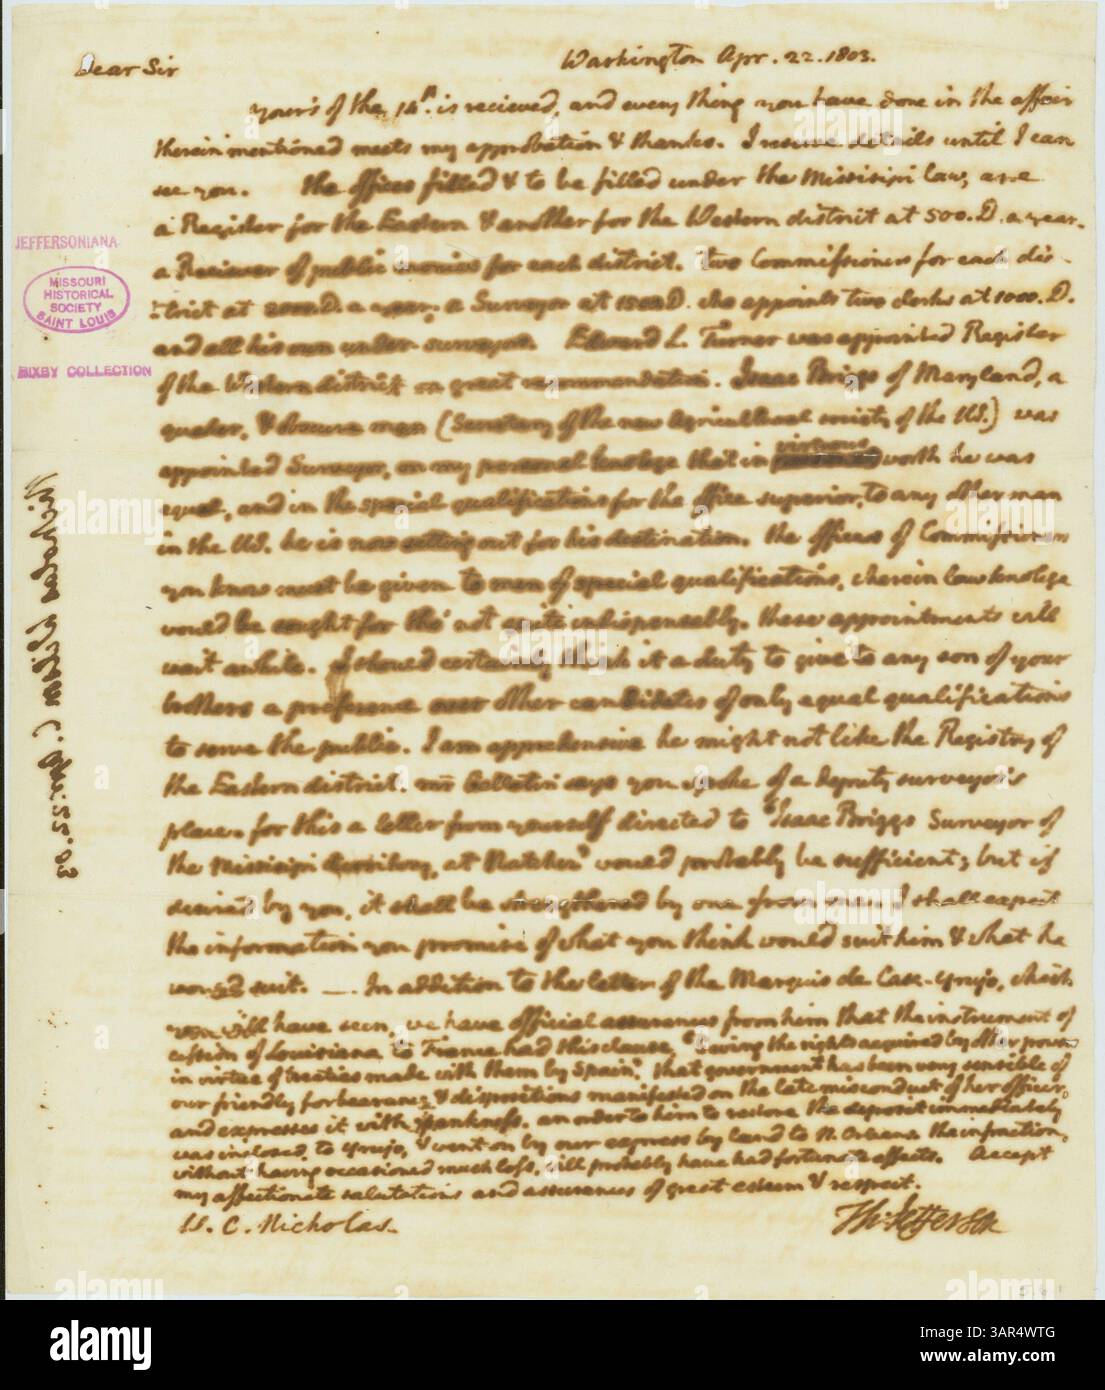 Dear Sir
Washington Apr. 22. 1803.
yours of the 14th. is recieved, and every thing you have done in the affair
therein mentioned meets my approbation & thanks. I reserve details until I can
see you. the offices filled & to be filled under the Missisipi law, are
a Register for the Eastern & another for the Western district at 500. D. a year.
a Reciever of public monies for each district. two Commissioners for each dis-
-trict at 2000. D. a year. a Surveyor at 1500. D. who appoints two clerks at 1000. D.
and all his own under surveyors. Edward L. Turner was appointed Register
of the Western district on great recommendation. Isaac Briggs of Maryland, a
quaker, & obscure man (Secretary of the new Agricultural society of the US.) was
appointed Surveyor, on my personal knolege that in virtuous worth he was
equal, and in the special qualifications for the office superior, to any other man
in the US. he is now setting out for his destination. the offices of Commissioners
you know must be given to men of special qualifications, wherein law knolege
would be sought for tho' not quite indispensably. these appointments will
wait awhile. I should certainly think it a duty to give to any son of your
brothers a preference over other candidates of only equal qualifications
to serve the public. I am apprehensive he might not like the Registry of
the Eastern district. mr Gallatin says you spoke of a deputy surveyor's
place. for this a letter from yourself directed to 'Isaac Briggs Surveyor of
the Missisipi territory, at Natchez' would probably be sufficient; but if
desired by you, it shall be strengthened by one from me. I shall expect
the information you promise of what you think would suit him & what he
would suit. — In addition to the letter of the Marquis de Casa-Yrujo, which
you will have seen, we have official assurances from him that the instrument of
cession of Louisiana to France had this clause, 'saving the rights acquired by other powers
in virtue of treaties made with them by Spain'. that government has been very sensible of
our friendly forbearance & dispositions manifested on the late misconduct of her officer,
and expresses it with frankness. an order to him to restore the deposit immediately
was inclosed to Yrujo, & went on by our express by land to N. Orleans. the infraction,
without having occasioned much loss, will probably have had fortunate effects. Accept
my affectionate salutations and assurances of great esteem & respect.
Th: Jefferson
W. C. Nicholas.
JEFFERSONIANA
MISSOURI
HISTORICAL
SOCIETY
SAINT LOUIS
BIXBY COLLECTION
Nicholas Wilson C. Apr. 22. 03
alamy
Image ID: 3AR4WTG
www.alamy.com